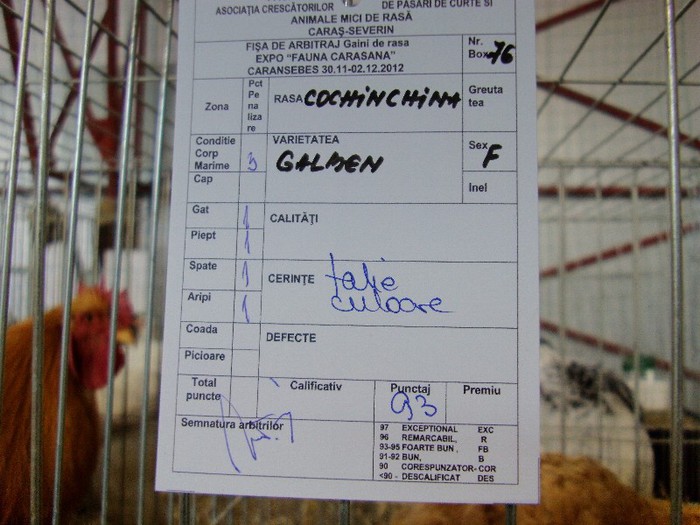 ASOCIAȚIA CRESCĂTORILOR DE PĂSĂRI DE CURTE SI
ANIMALE MICI DE RASĂ
CARAȘ-SEVERIN
FIȘA DE ARBITRAJ Gaini de rasa
EXPO "FAUNA CARASANA"
CARANSEBES 30.11-02.12.2012
Nr.
Box 76
Zona
Pct
Pe
na
liza
re
RASA COCHINCHINA
Greuta
tea
Conditie
Corp
Marime 3
VARIETATEA
GALBEN
Sex
F
Inel
Cap
Gat 1
CALITĂȚI
Piept 1
Spate 1
CERINȚE talie
culoare
Aripi 1
Coada
DEFECTE
Picioare
Total
puncte
Calificativ
Punctaj
93
Premiu
Semnatura arbitrilor
97 EXCEPTIONAL EXC
96 REMARCABIL, R
93-95 FOARTE BUN, FB
91-92 BUN, B
90 CORESPUNZATOR-COR
<90 - DESCALIFICAT DES